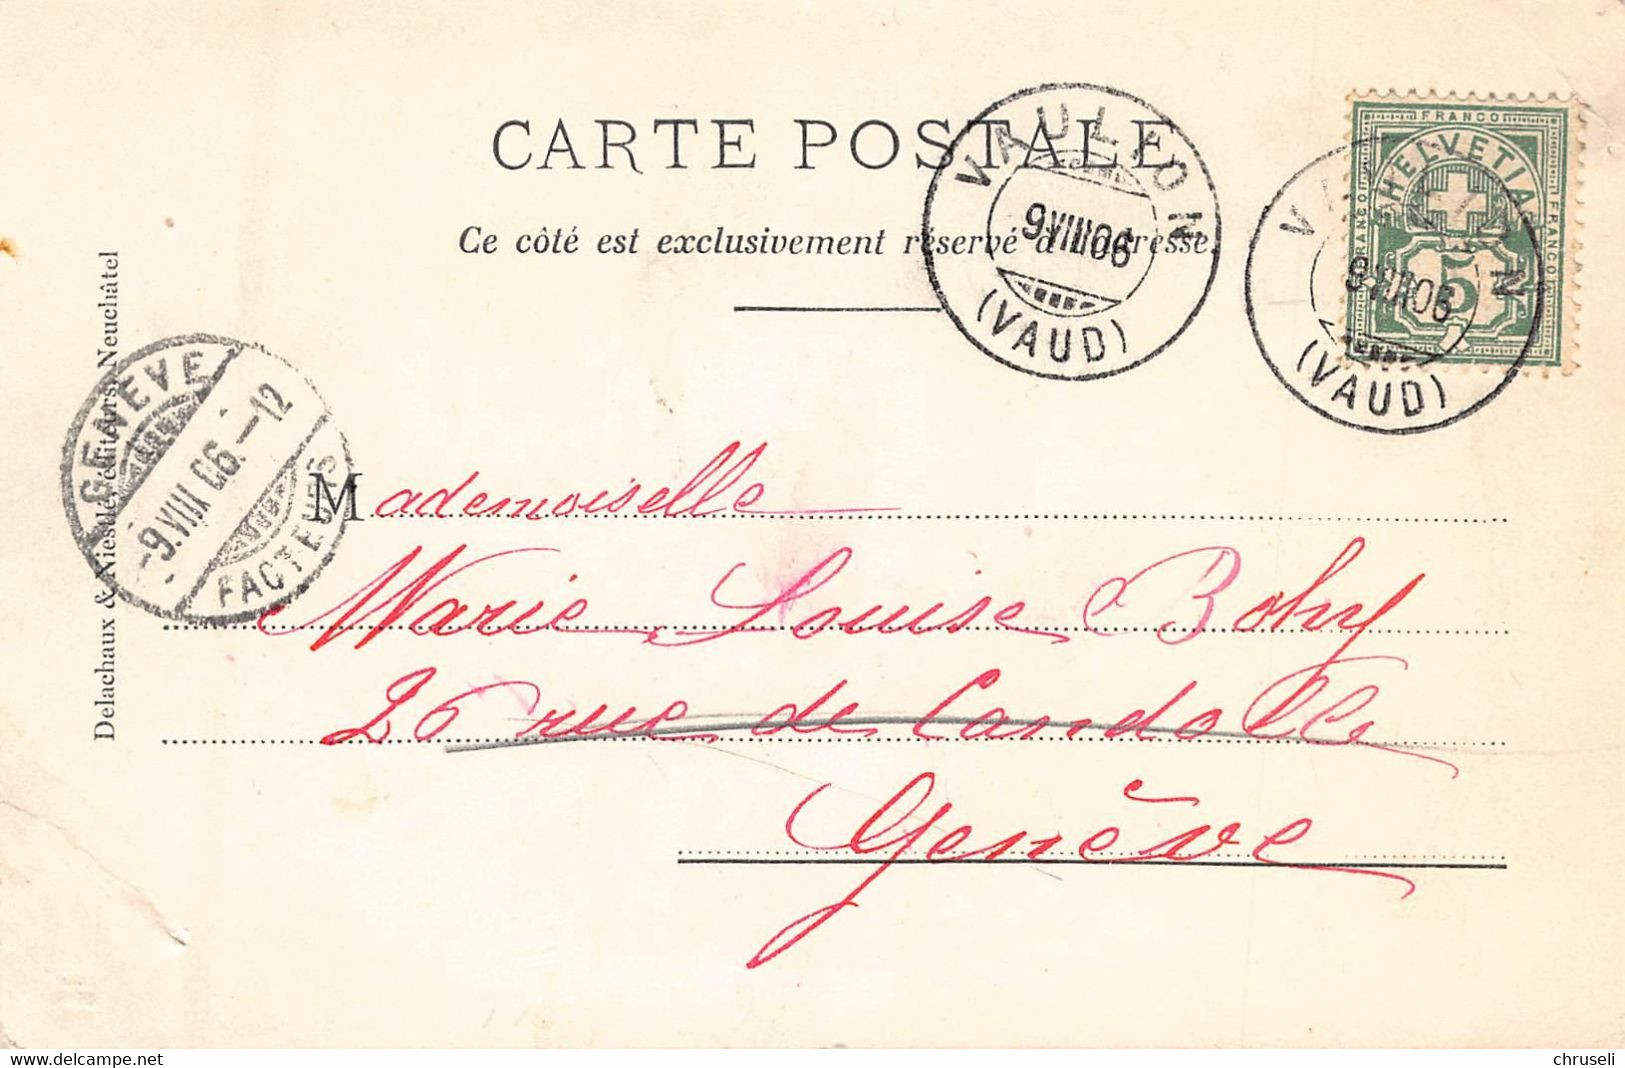 CARTE POSTALE
Ce côté est exclusivement réservé à l'adresse.
VAULION
9 VIII 06
(VAUD)
FRANCO
FRANCO
FRANCO
HELVETIA
5
VAULION
9 VIII 06
(VAUD)
GENÈVE
-9.VIII 06.-12
FACTEURS
Delachaux & Niestlé, éditeurs, Neuchâtel
Mademoiselle
Marie Louise Bohy
26 rue de Candolle
Genève
www.delcampe.net
chruseli